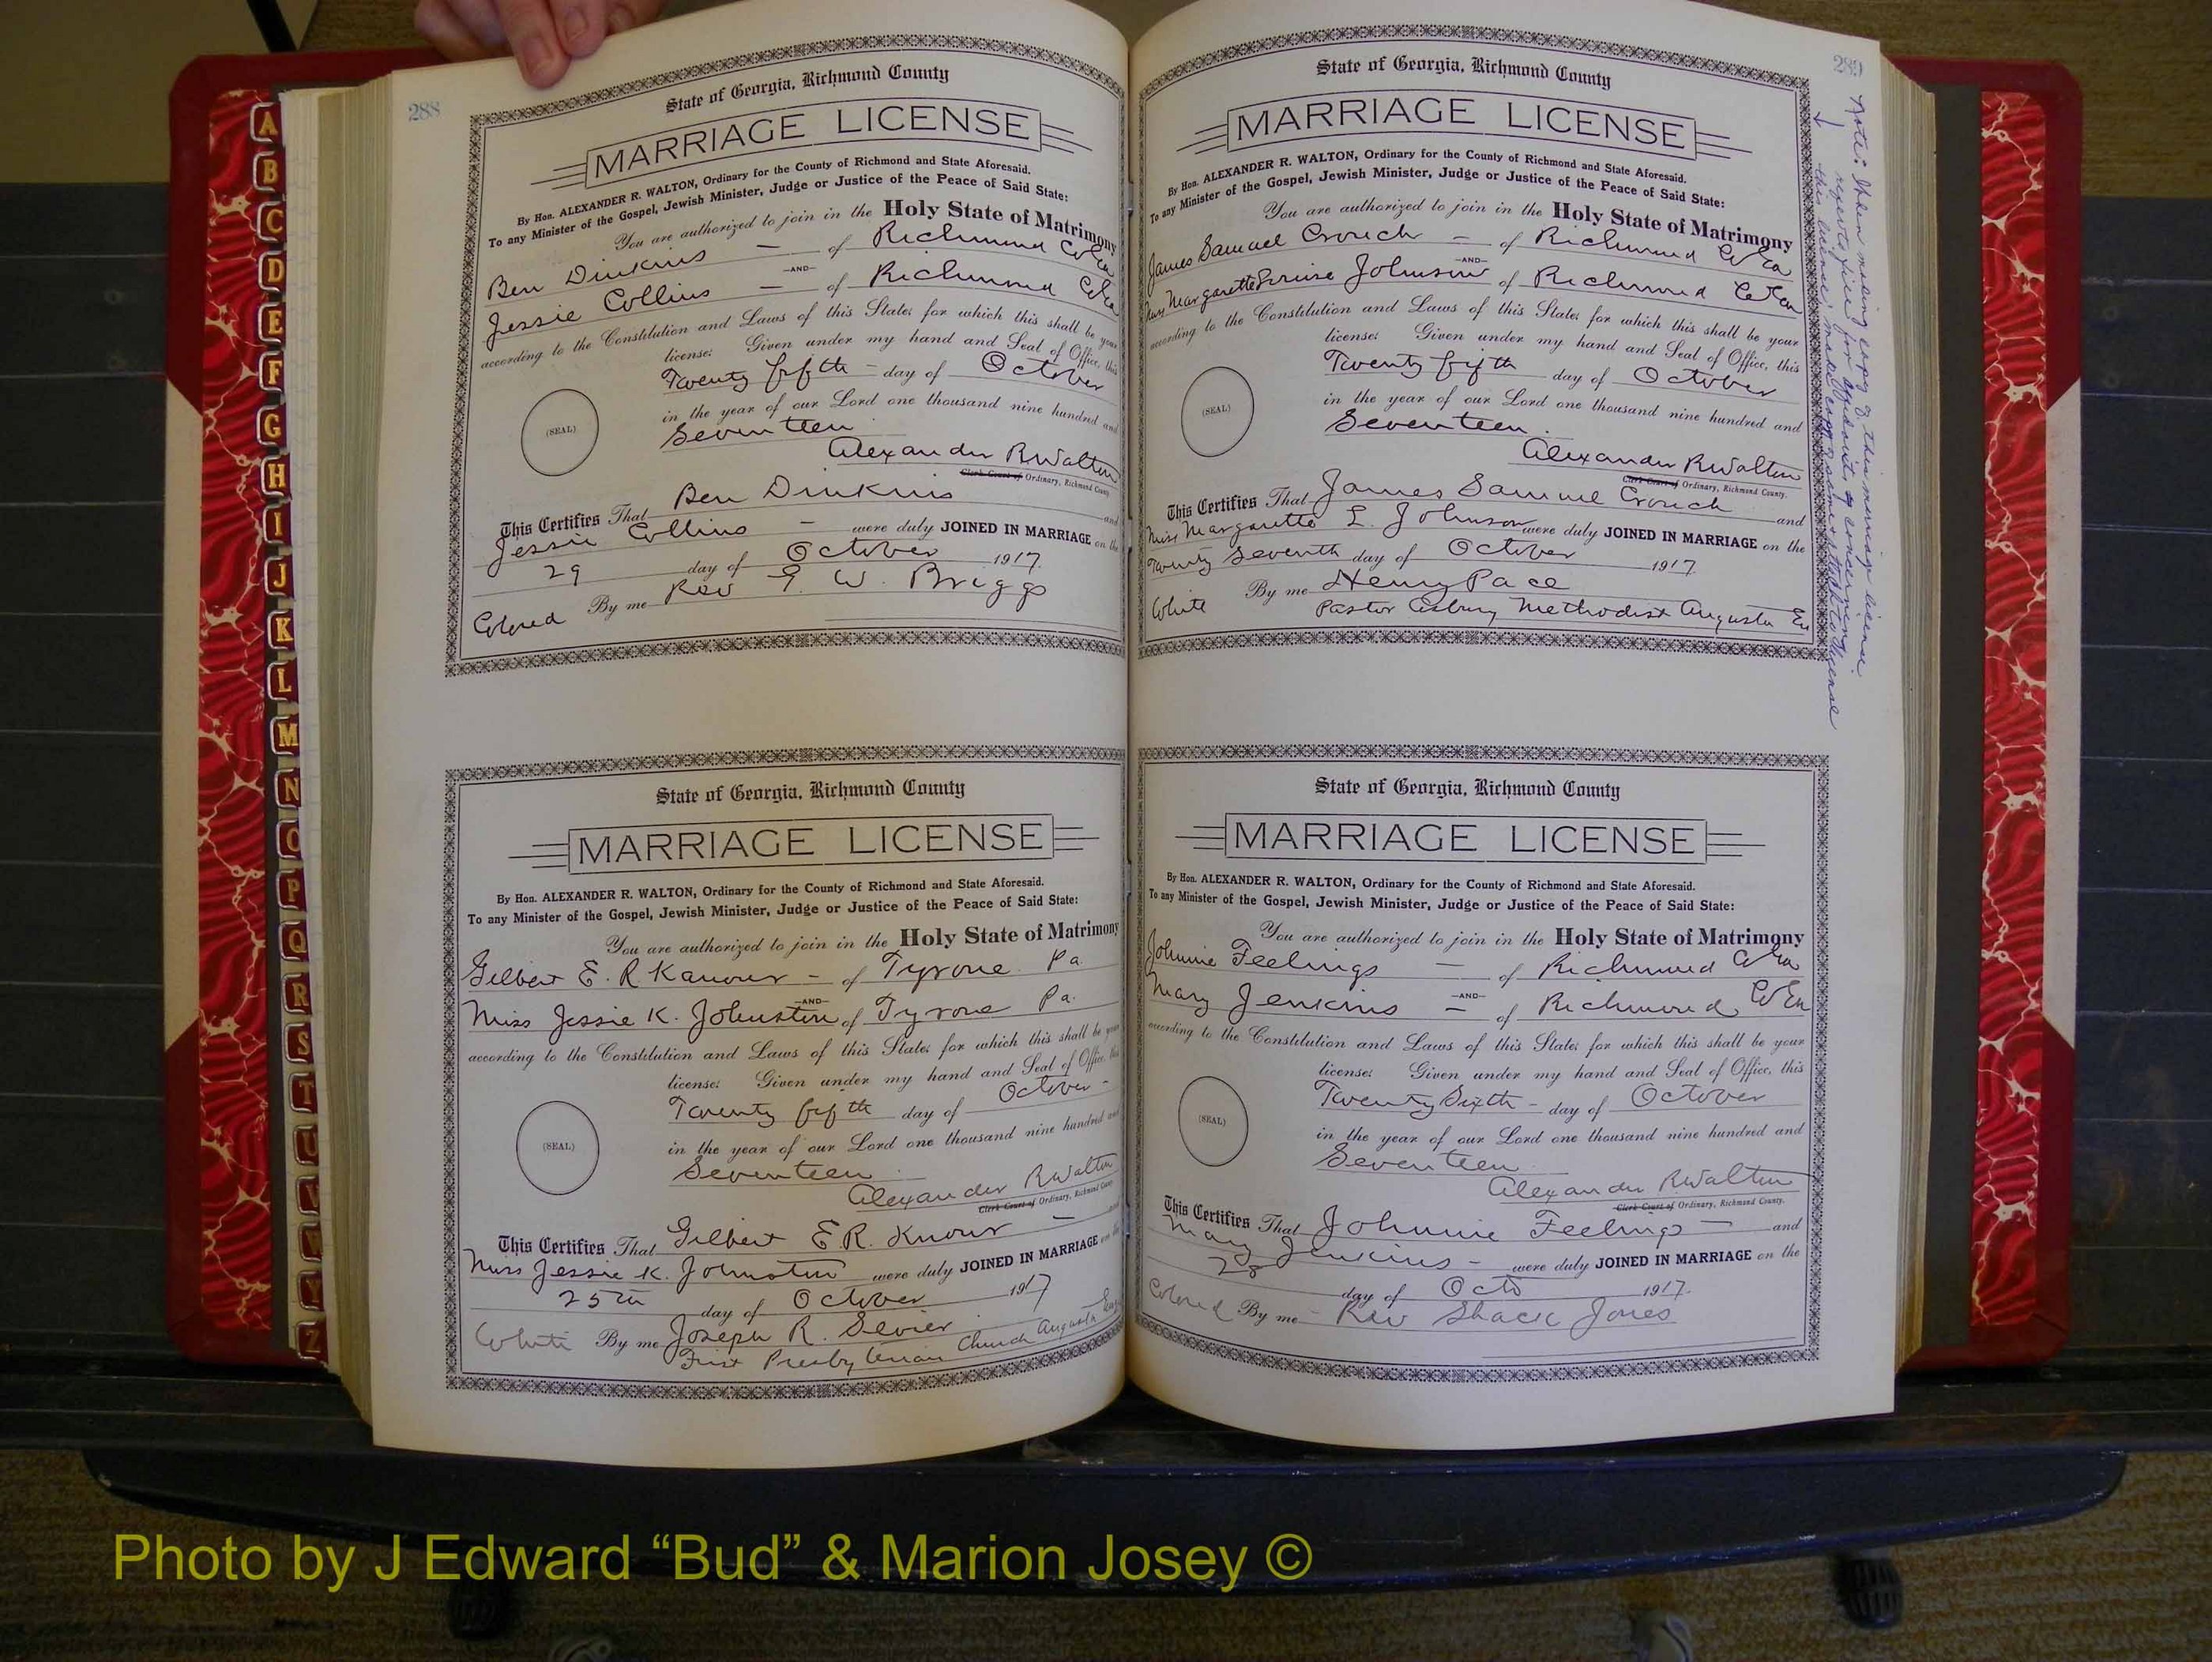 288
State of Georgia, Richmond County
MARRIAGE LICENSE
By Hon. ALEXANDER R. WALTON, Ordinary for the County of Richmond and State Aforesaid.
To any Minister of the Gospel, Jewish Minister, Judge or Justice of the Peace of Said State:
You are authorized to join in the Holy State of Matrimony
Ben Dinkins — of Richmond Co Ga
—AND—
Jessie Collins — of Richmond Co Ga
according to the Constitution and Laws of this State; for which this shall be your
license: Given under my hand and Seal of Office, this
Twenty fifth - day of October
in the year of our Lord one thousand nine hundred and
Seventeen
(SEAL)
Alexander R Walton
Clerk Court of Ordinary, Richmond County.
This Certifies That Ben Dinkins and
Jessie Collins - were duly JOINED IN MARRIAGE on the
29 day of October 1917.
Colored By me Rev G. W. Briggs
State of Georgia, Richmond County
MARRIAGE LICENSE
By Hon. ALEXANDER R. WALTON, Ordinary for the County of Richmond and State Aforesaid.
To any Minister of the Gospel, Jewish Minister, Judge or Justice of the Peace of Said State:
You are authorized to join in the Holy State of Matrimony
Gilbert E. R Kanour - of Tyrone Pa.
—AND—
Miss Jessie K. Johnston of Tyrone Pa.
according to the Constitution and Laws of this State; for which this shall be your
license: Given under my hand and Seal of Office, this
Twenty fifth day of October -
in the year of our Lord one thousand nine hundred and
Seventeen
(SEAL)
Alexander R Walton
Clerk Court of Ordinary, Richmond County.
This Certifies That Gilbert E.R. Knour — and
Miss Jessie K. Johnston were duly JOINED IN MARRIAGE on the
25th day of October 1917
White By me Joseph R. Sevier
First Presbyterian Church Augusta Ga
289
State of Georgia, Richmond County
MARRIAGE LICENSE
By Hon. ALEXANDER R. WALTON, Ordinary for the County of Richmond and State Aforesaid.
To any Minister of the Gospel, Jewish Minister, Judge or Justice of the Peace of Said State:
You are authorized to join in the Holy State of Matrimony
James Samuel Crouch - of Richmond Co Ga
—AND—
Miss Margarette Louise Johnson of Richmond Co Ga
according to the Constitution and Laws of this State; for which this shall be your
license: Given under my hand and Seal of Office, this
Twenty fifth day of October
in the year of our Lord one thousand nine hundred and
Seventeen.
(SEAL)
Alexander R Walton
Clerk Court of Ordinary, Richmond County.
This Certifies That James Samuel Crouch and
Miss Margarette L. Johnson were duly JOINED IN MARRIAGE on the
Twenty Seventh day of October 1917
White By me Henry Pace
Pastor Asbury Methodist Augusta Ga
Note: When making copy of this marriage license
affidavits concerning
this license make copy of same
State of Georgia, Richmond County
MARRIAGE LICENSE
By Hon. ALEXANDER R. WALTON, Ordinary for the County of Richmond and State Aforesaid.
To any Minister of the Gospel, Jewish Minister, Judge or Justice of the Peace of Said State:
You are authorized to join in the Holy State of Matrimony
Johnnie Feelings — of Richmond Co Ga
—AND—
Mary Jenkins - of Richmond Co Ga
according to the Constitution and Laws of this State; for which this shall be your
license: Given under my hand and Seal of Office, this
Twenty Sixth - day of October
in the year of our Lord one thousand nine hundred and
Seventeen
(SEAL)
Alexander R Walton
Clerk Court of Ordinary, Richmond County.
This Certifies That Johnnie Feelings — and
Mary Jenkins - were duly JOINED IN MARRIAGE on the
28 day of Octo 1917.
Colored By me Rev Shack Jones
A
B
C
D
E
F
G
H
I
J
K
L
M
N
O
P
Q
R
S
T
U
V
W
Y
Z
Photo by J Edward “Bud” & Marion Josey ©